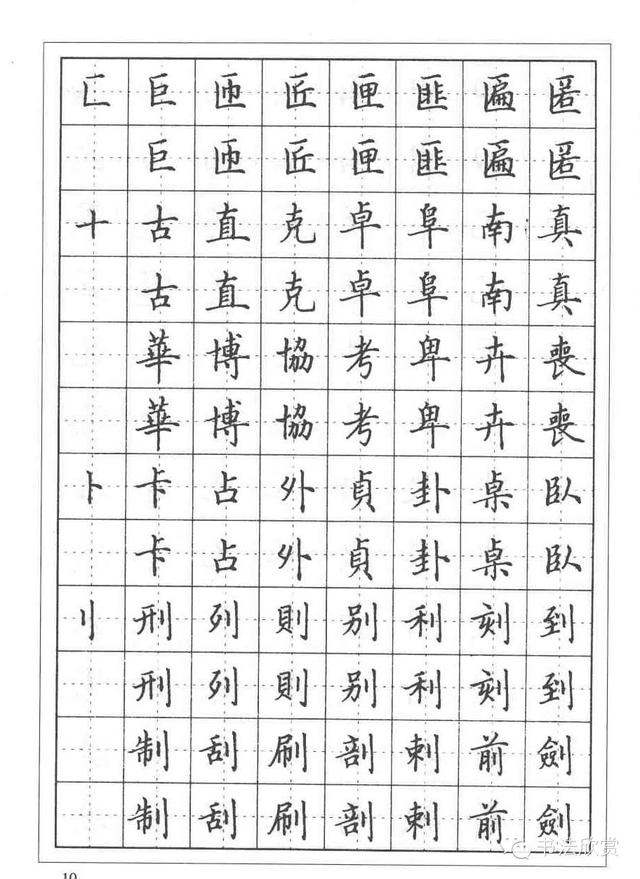 匚 巨 匝 匠 匣 匪 匾 匿
巨 匝 匠 匣 匪 匾 匿
十 古 直 克 卓 阜 南 真
古 直 克 卓 阜 南 真
華 博 協 考 卑 卉 喪
華 博 協 考 卑 卉 喪
卜 卡 占 外 貞 卦 桌 臥
卡 占 外 貞 卦 桌 臥
刂 刑 列 則 别 利 刻 到
刑 列 則 别 利 刻 到
制 刮 刷 剖 刺 前 劍
制 刮 刷 剖 刺 前 劍
书法欣赏
10